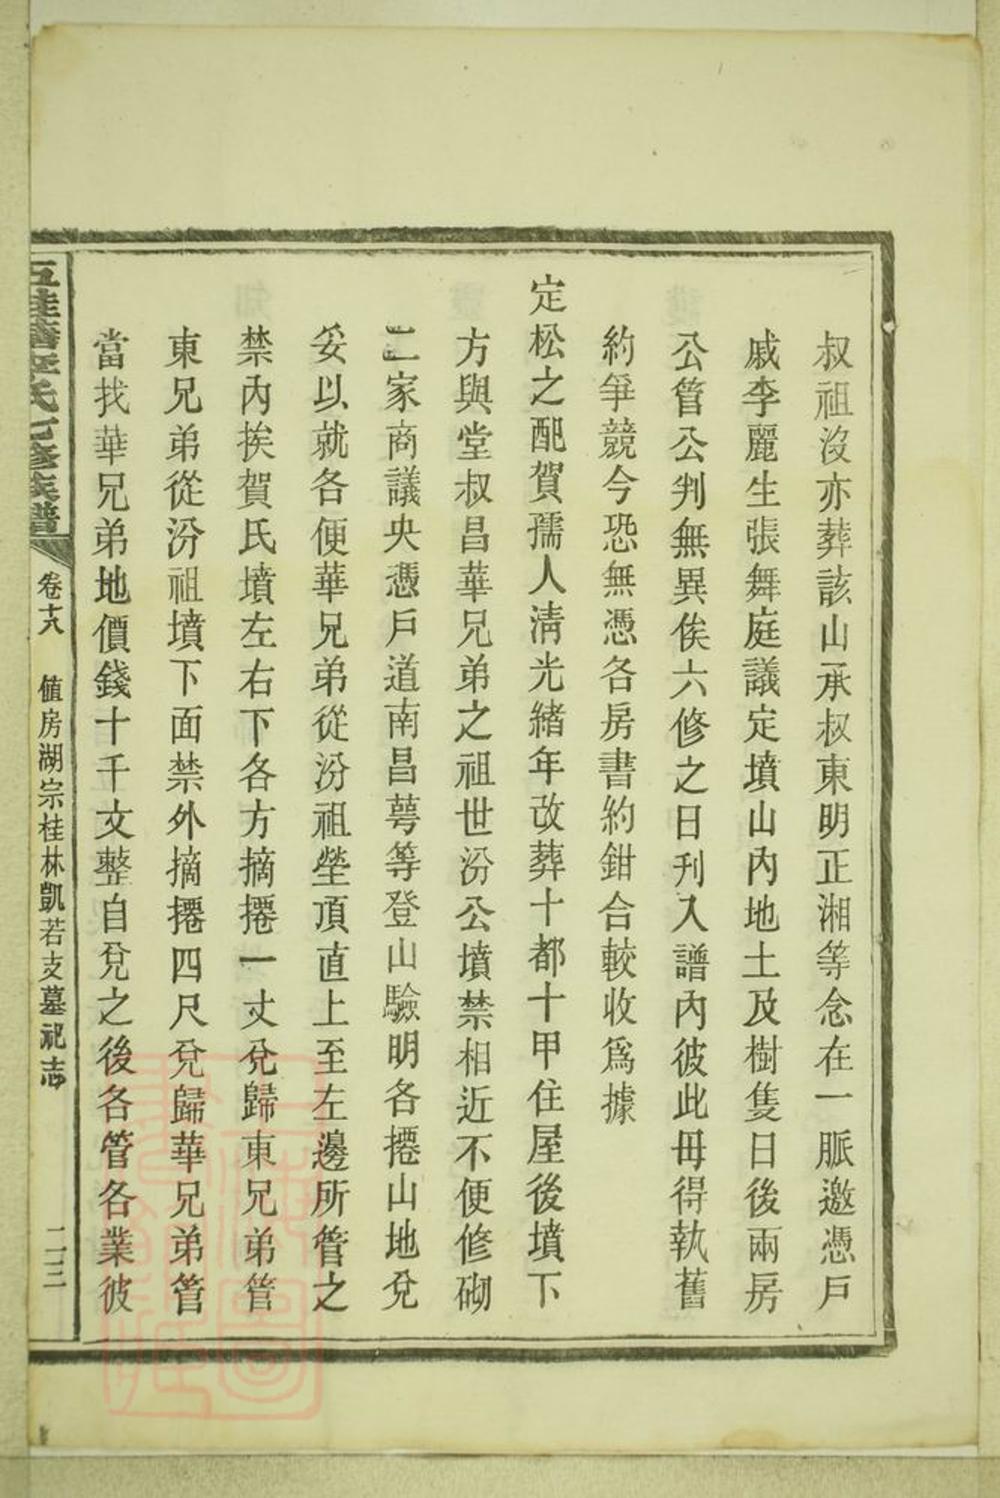 叔祖沒亦葬該山承叔東明正湘等念在一脈邀憑戶
戚李麗生張舞庭議定墳山內地土及樹隻日後兩房
公管公判無異俟六修之日刋入譜內彼此毋得執舊
約爭競今恐無憑各房書約鉗合較收爲據
定松之配賀孺人淸光緒年改葬十都十甲住屋後墳下
方與堂叔昌華兄弟之祖世汾公墳禁相近不便修砌
二家商議央憑戶道南昌蕚等登山驗明各㨔山地兌
妥以就各便華兄弟從汾祖塋頂直上至左邊所管之
禁內挨賀氏墳左右下各方摘㨔一丈兌歸東兄弟管
東兄弟從汾祖墳下面禁外摘㨔四尺兌歸華兄弟管
當找華兄弟地價錢十千文整自兌之後各管各業彼
氏七修族譜
卷十八
値房湖宗桂林凱若支墓祀志
二三